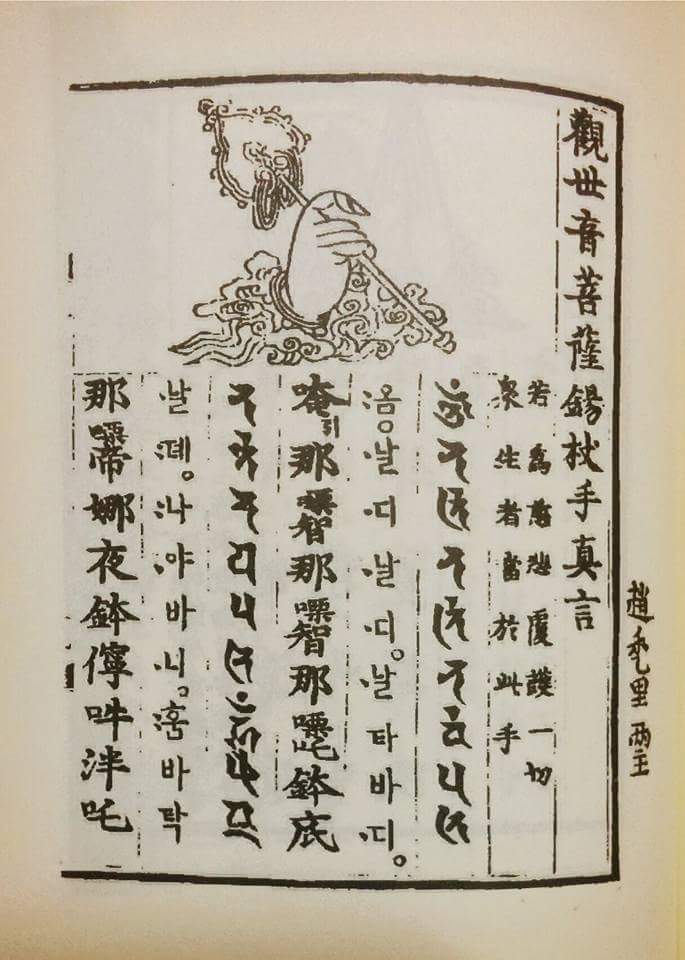 趙禿里 兩主
觀世音菩薩錫杖手真言
若為慈悲覆護一切
衆生者當於此手
옴。날디날디。날타바디。
唵引那㗚智那㗚智那㗚吒鉢底
날뎨。나야바니。훔바탁
那㗚帝娜夜鉢儜吽泮吒